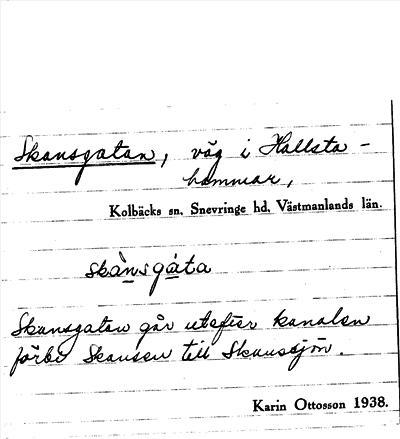 Skansgatan, väg i Hallsta-
hammar,
Kolbäcks sn, Snevringe hd, Västmanlands län.
skànsgàta
Skansgatan går utefter kanalen
förbi Skansen till Skanssjön.
Karin Ottosson 1938.